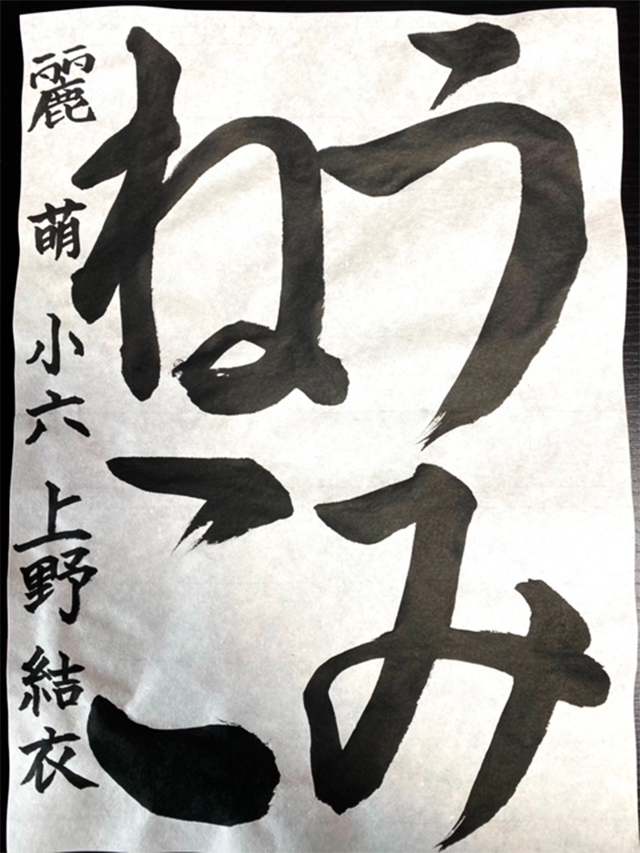 うみ
ねこ
麗 萌 小六 上野 結衣